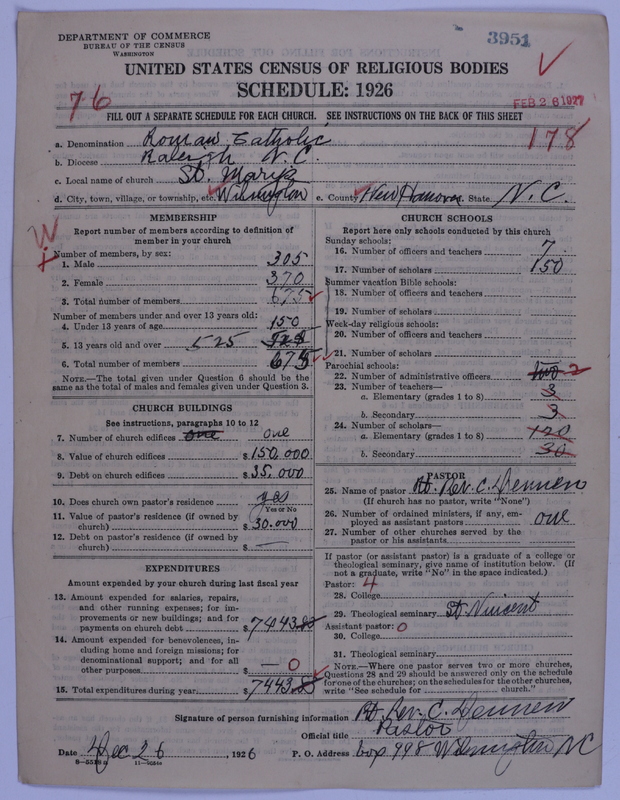 DEPARTMENT OF COMMERCE
BUREAU OF THE CENSUS
WASHINGTON
3951
UNITED STATES CENSUS OF RELIGIOUS BODIES
SCHEDULE: 1926
76
FEB 26 1927
FILL OUT A SEPARATE SCHEDULE FOR EACH CHURCH. SEE INSTRUCTIONS ON THE BACK OF THIS SHEET
178
a. Denomination Roman Catholic
b. Diocese Raleigh N.C.
c. Local name of church St. Mary's
d. City, town, village, or township, etc. Wilmington e. County New Hanover State N.C.
MEMBERSHIP
Report number of members according to definition of member in your church
Number of members, by sex:
1. Male 305
2. Female 370
3. Total number of members 675
Number of members under and over 13 years old:
4. Under 13 years of age 150
5. 13 years old and over 525
6. Total number of members 675
NOTE.—The total given under Question 6 should be the same as the total of males and females given under Question 3.
CHURCH BUILDINGS
See instructions, paragraphs 10 to 12
7. Number of church edifices one one
8. Value of church edifices $150,000
9. Debt on church edifices $35,000
10. Does church own pastor's residence yes
Yes or No
11. Value of pastor's residence (if owned by church) $30.000
12. Debt on pastor's residence (if owned by church) $ —
EXPENDITURES
Amount expended by your church during last fiscal year
13. Amount expended for salaries, repairs, and other running expenses; for improvements or new buildings; and for payments on church debt $7443
14. Amount expended for benevolences, including home and foreign missions; for denominational support; and for all other purposes $ — 0
15. Total expenditures during year $7443
CHURCH SCHOOLS
Report here only schools conducted by this church
Sunday schools:
16. Number of officers and teachers 7
17. Number of scholars 150
Summer vacation Bible schools:
18. Number of officers and teachers
19. Number of scholars
Week-day religious schools:
20. Number of officers and teachers
21. Number of scholars
Parochial schools:
22. Number of administrative officers two 2
23. Number of teachers—
a. Elementary (grades 1 to 8) 3
b. Secondary 3
24. Number of scholars—
a. Elementary (grades 1 to 8) 120
b. Secondary 30
PASTOR
25. Name of pastor Rt. Rev. C. Dennen
(If church has no pastor, write "None")
26. Number of ordained ministers, if any, employed as assistant pastors one
27. Number of other churches served by the pastor or his assistants
If pastor (or assistant pastor) is a graduate of a college or theological seminary, give name of institution below. (If not a graduate, write "No" in the space indicated.)
Pastor: 4
28. College
29. Theological seminary St Vincent
Assistant pastor: 0
30. College
31. Theological seminary
NOTE.—Where one pastor serves two or more churches, Questions 28 and 29 should be answered only on the schedule for one of the churches; on the schedules for the other churches, write "See schedule for church."
Signature of person furnishing information Rt Rev. C. Dennen
Official title Pastor
Date Dec 26, 1926 P. O. Address box 998 Wilmington NC
8-5518a